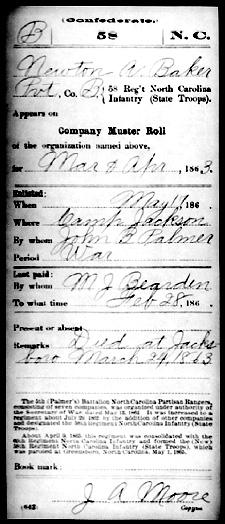 (Confederate.)
B 58 N.C.
Newton A. Baker
Pvt, Co. , 58 Reg't North Carolina
Infantry (State Troops).
Appears on
Company Muster Roll
of the organization named above,
for Mar & Apr, 1863.
Enlisted:
When May 11, 186
Where Camp Jackson
By whom John B Palmer
Period War
Last paid:
By whom M J Bearden
To what time Feb 28, 186
Present or absent
Remarks Died at Jacks
boro March 24, 1863
The 5th (Palmer's) Battalion North Carolina Partisan Rangers,
consisting of seven companies, was organized under authority of the
Secretary of War dated May 13, 1862. It was increased to a
regiment about July 29, 1862 by the addition of other companies
and designated the 58th Regiment North Carolina Infantry (State
Troops).
About April 9, 1865, this regiment was consolidated with the
Regiment North Carolina Infantry and formed the (New)
58th Regiment North Carolina Infantry (State Troops), which
was paroled at Greensboro, North Carolina, May 1, 1865.
Book mark:
(642) J A Moore
Copyist.